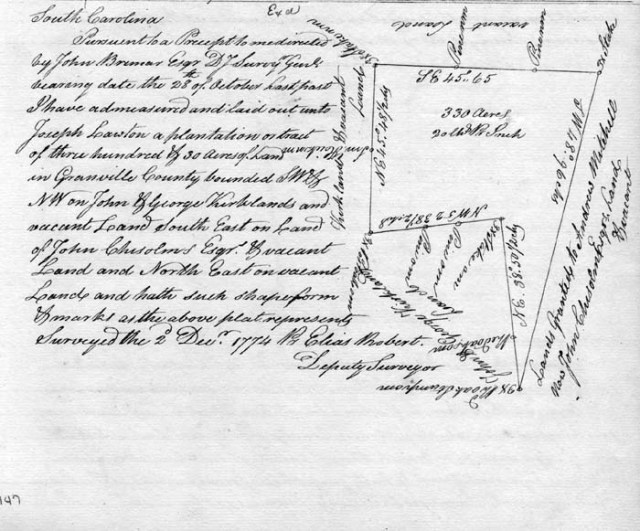 South Carolina
Exd
Pursuant to a Precept to me directed
by John Bremar Esqr. Dy. Survey. Genl.
bearing date the 28th of October Last past
I have admeasured and laid out unto
Joseph Lawton a plantation or tract
of three hundred & 30 Acres of Land
in Granville County bounded SW &
NW on John & George Kirklands and
vacant Land South East on Land
of John Chisolms Esqr. & vacant
Land and North East on vacant
Land and hath such shape form
& marks as the above plat represents
Surveyed the 2d. Decr. 1774 Pr. Elias Robert.
Deputy Surveyor
vacant Land
SE 45° 65
330 Acres
20 Chs. Pr. Inch
Kirkland & vacant
Land
NW 52
George Kirkland
Land
Lands Granted to Andrew Mitchell
now John Chisolms Esqrs. Land
& vacant
147